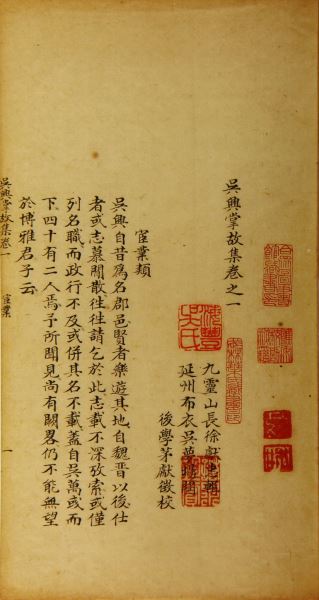 吳興掌故集卷之一
九靈山長徐獻忠輯
延州布衣吳
後學茅獻徵校
宦業類
吳興自昔爲名郡邑賢者樂遊其地自魏晉以後仕
者或志慕閒散往往請乞於此志載不深攷索或僅
列名職而政行不及或併其名不載蓋自吳萬或而
下四十有二人焉予所聞見尚有闕畧仍不能無望
於博雅君子云
吳興掌故集卷一
宦業
一